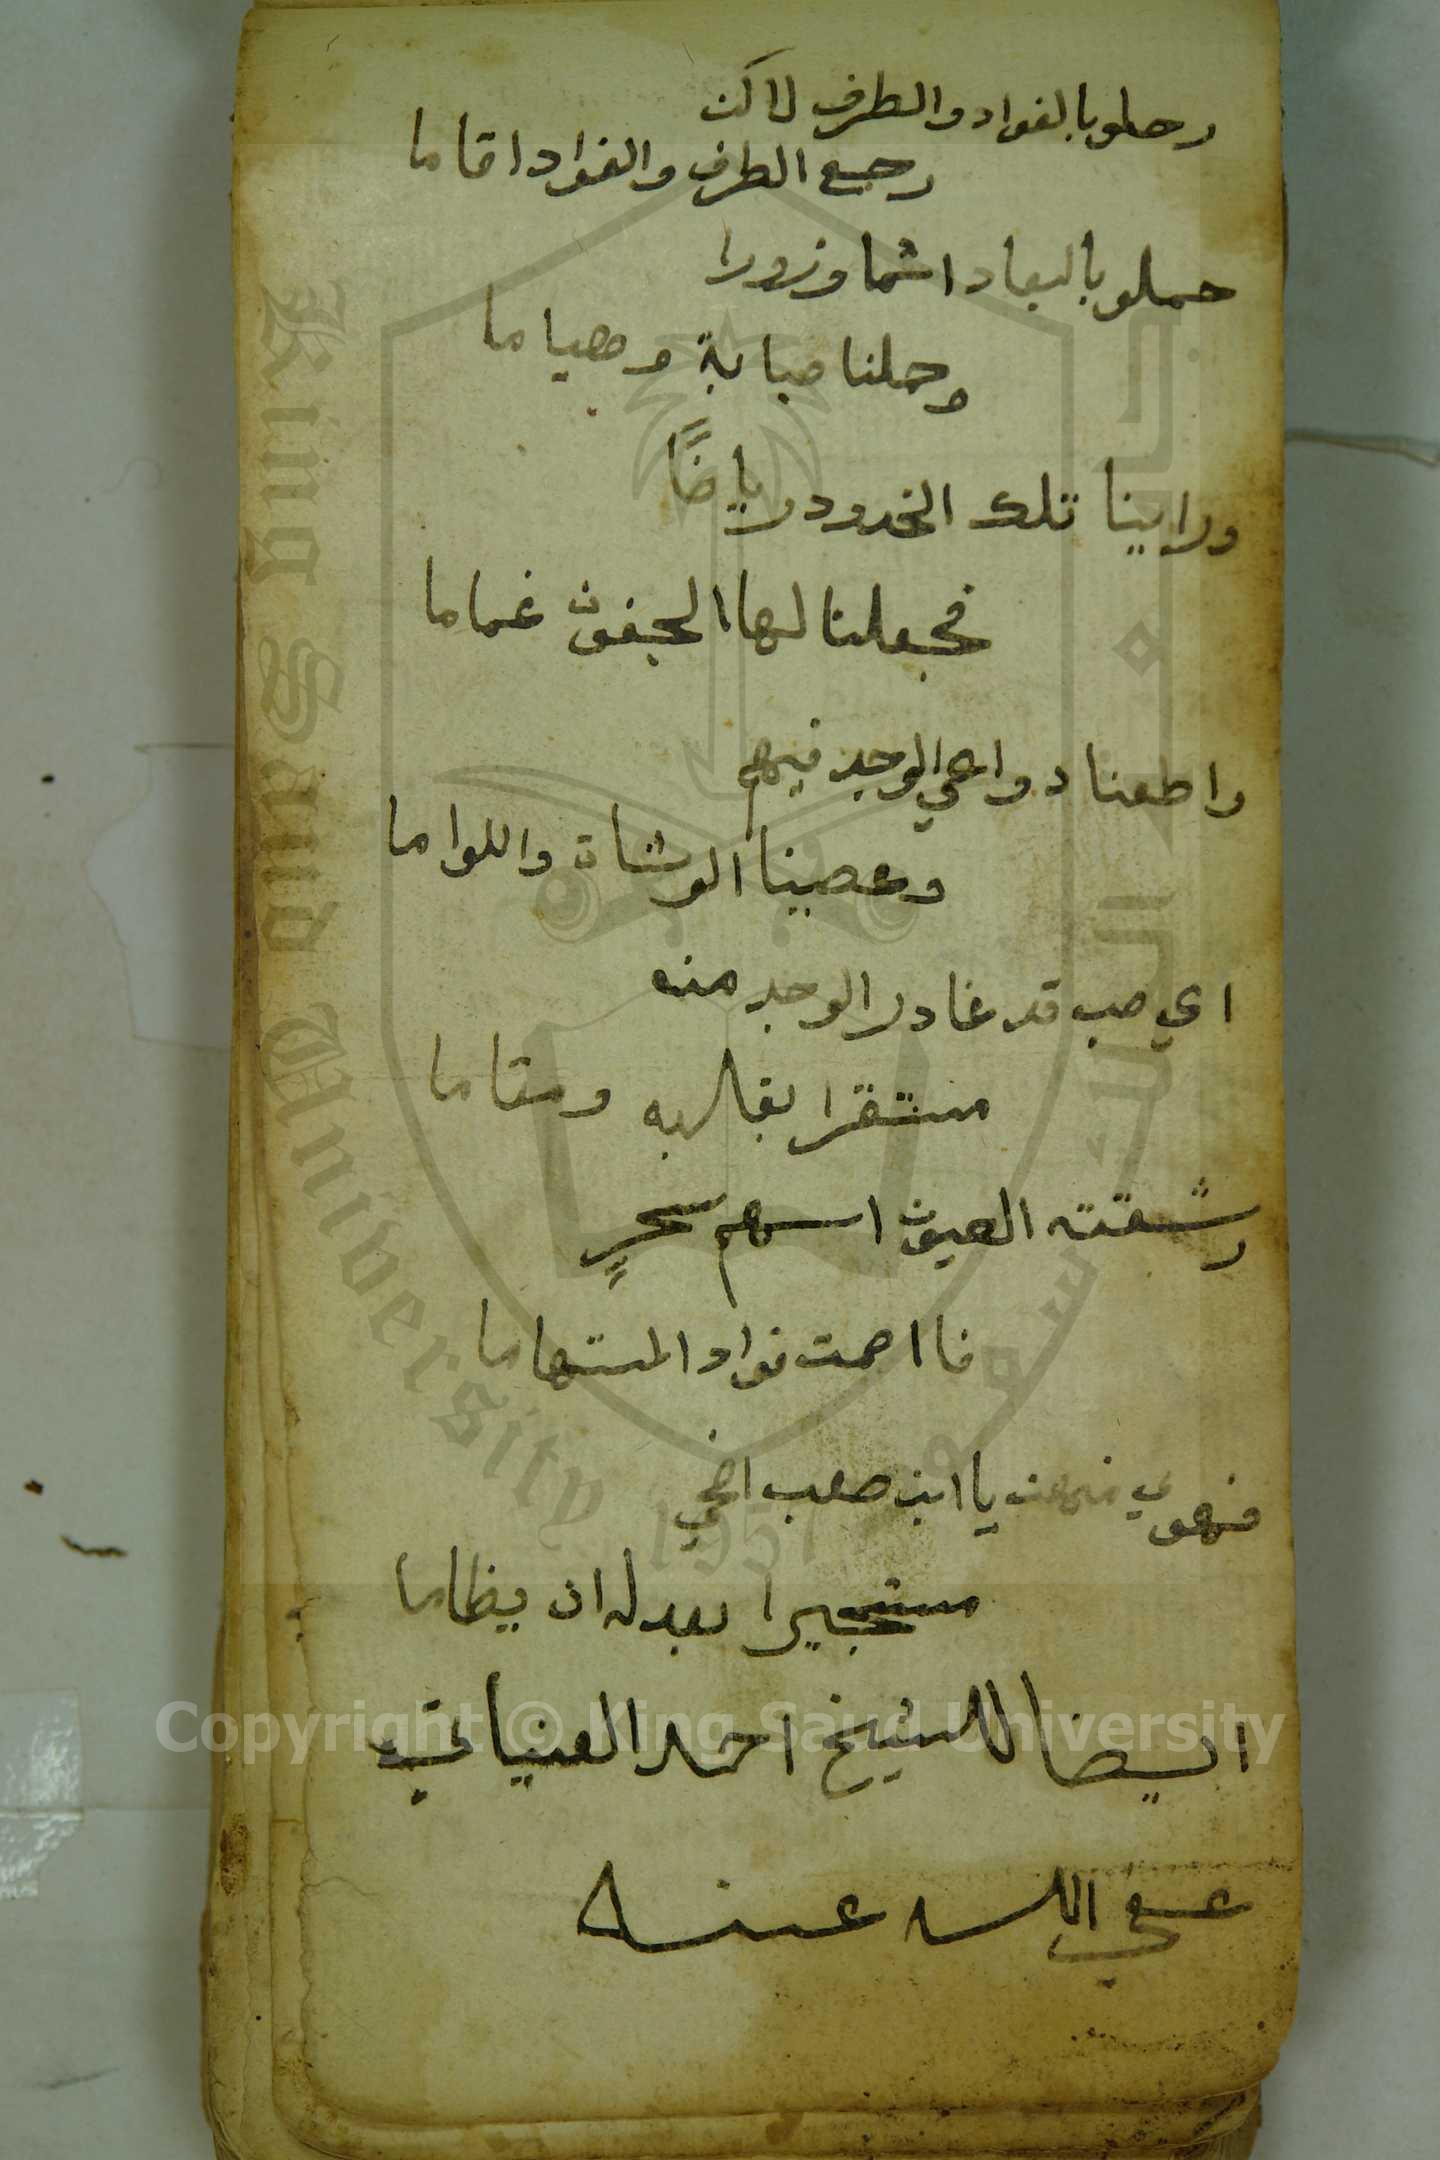 رحلو بالفواد والطرف لاكن
رجع الطرف والفواد اقاما
حملو بالبعاد اثما وزورا
وحملنا صبابة وهياما
وراينا تلك الخدود رياضًا
فجعلنا لها الجفون غماما
واطعنا دواعي الوجد فيهم
وعصينا الوشاة واللواما
اي صب قد غادر الوجد منه
مستقرا بقلبه ومقاما
رشقته العيون اسهم سحرٍ
فااصمت فواد المستهاما
فهو يا ابن صعب اضحي
مستجيرا بعدله ان يظاما
ايضا للشيخ احمد العنياتي
عفي الله عنه
King Saud University
1957
جامعة الملك سعود
Copyright © King Saud University